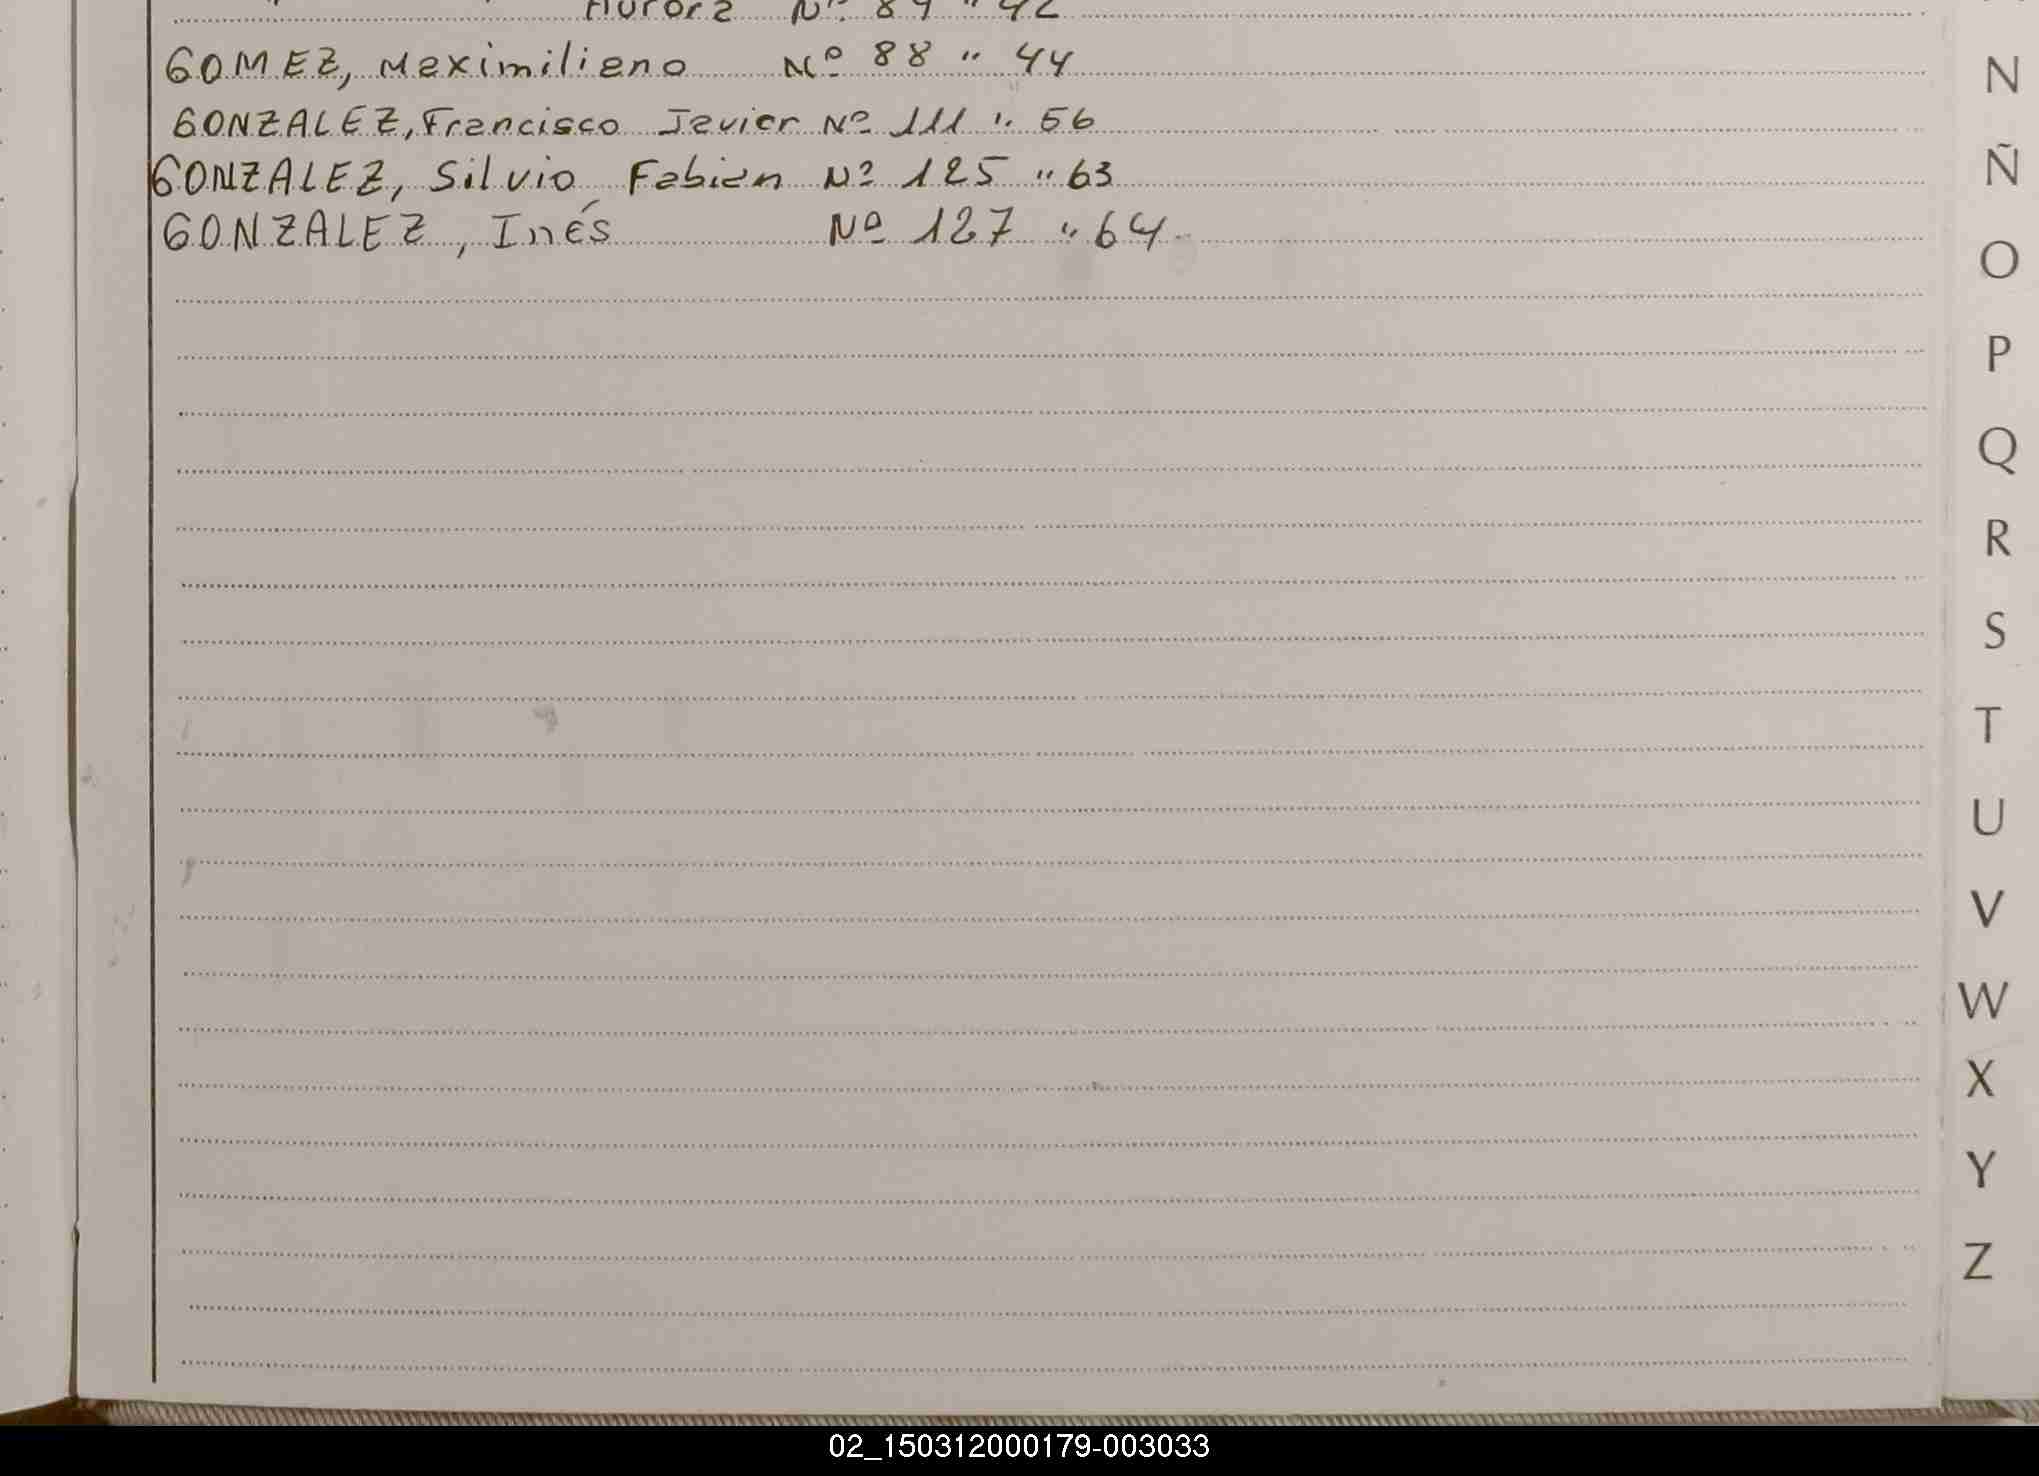 Aurora Nº. 84 " 42
GOMEZ, Maximiliano Nº 88 " 44
GONZALEZ, Francisco Javier Nº 111 " 56
GONZALEZ, Silvio Fabián Nº 125 " 63
GONZALEZ, Inés Nº 127 " 64
N
Ñ
O
P
Q
R
S
T
U
V
W
X
Y
Z
02_150312000179-003033